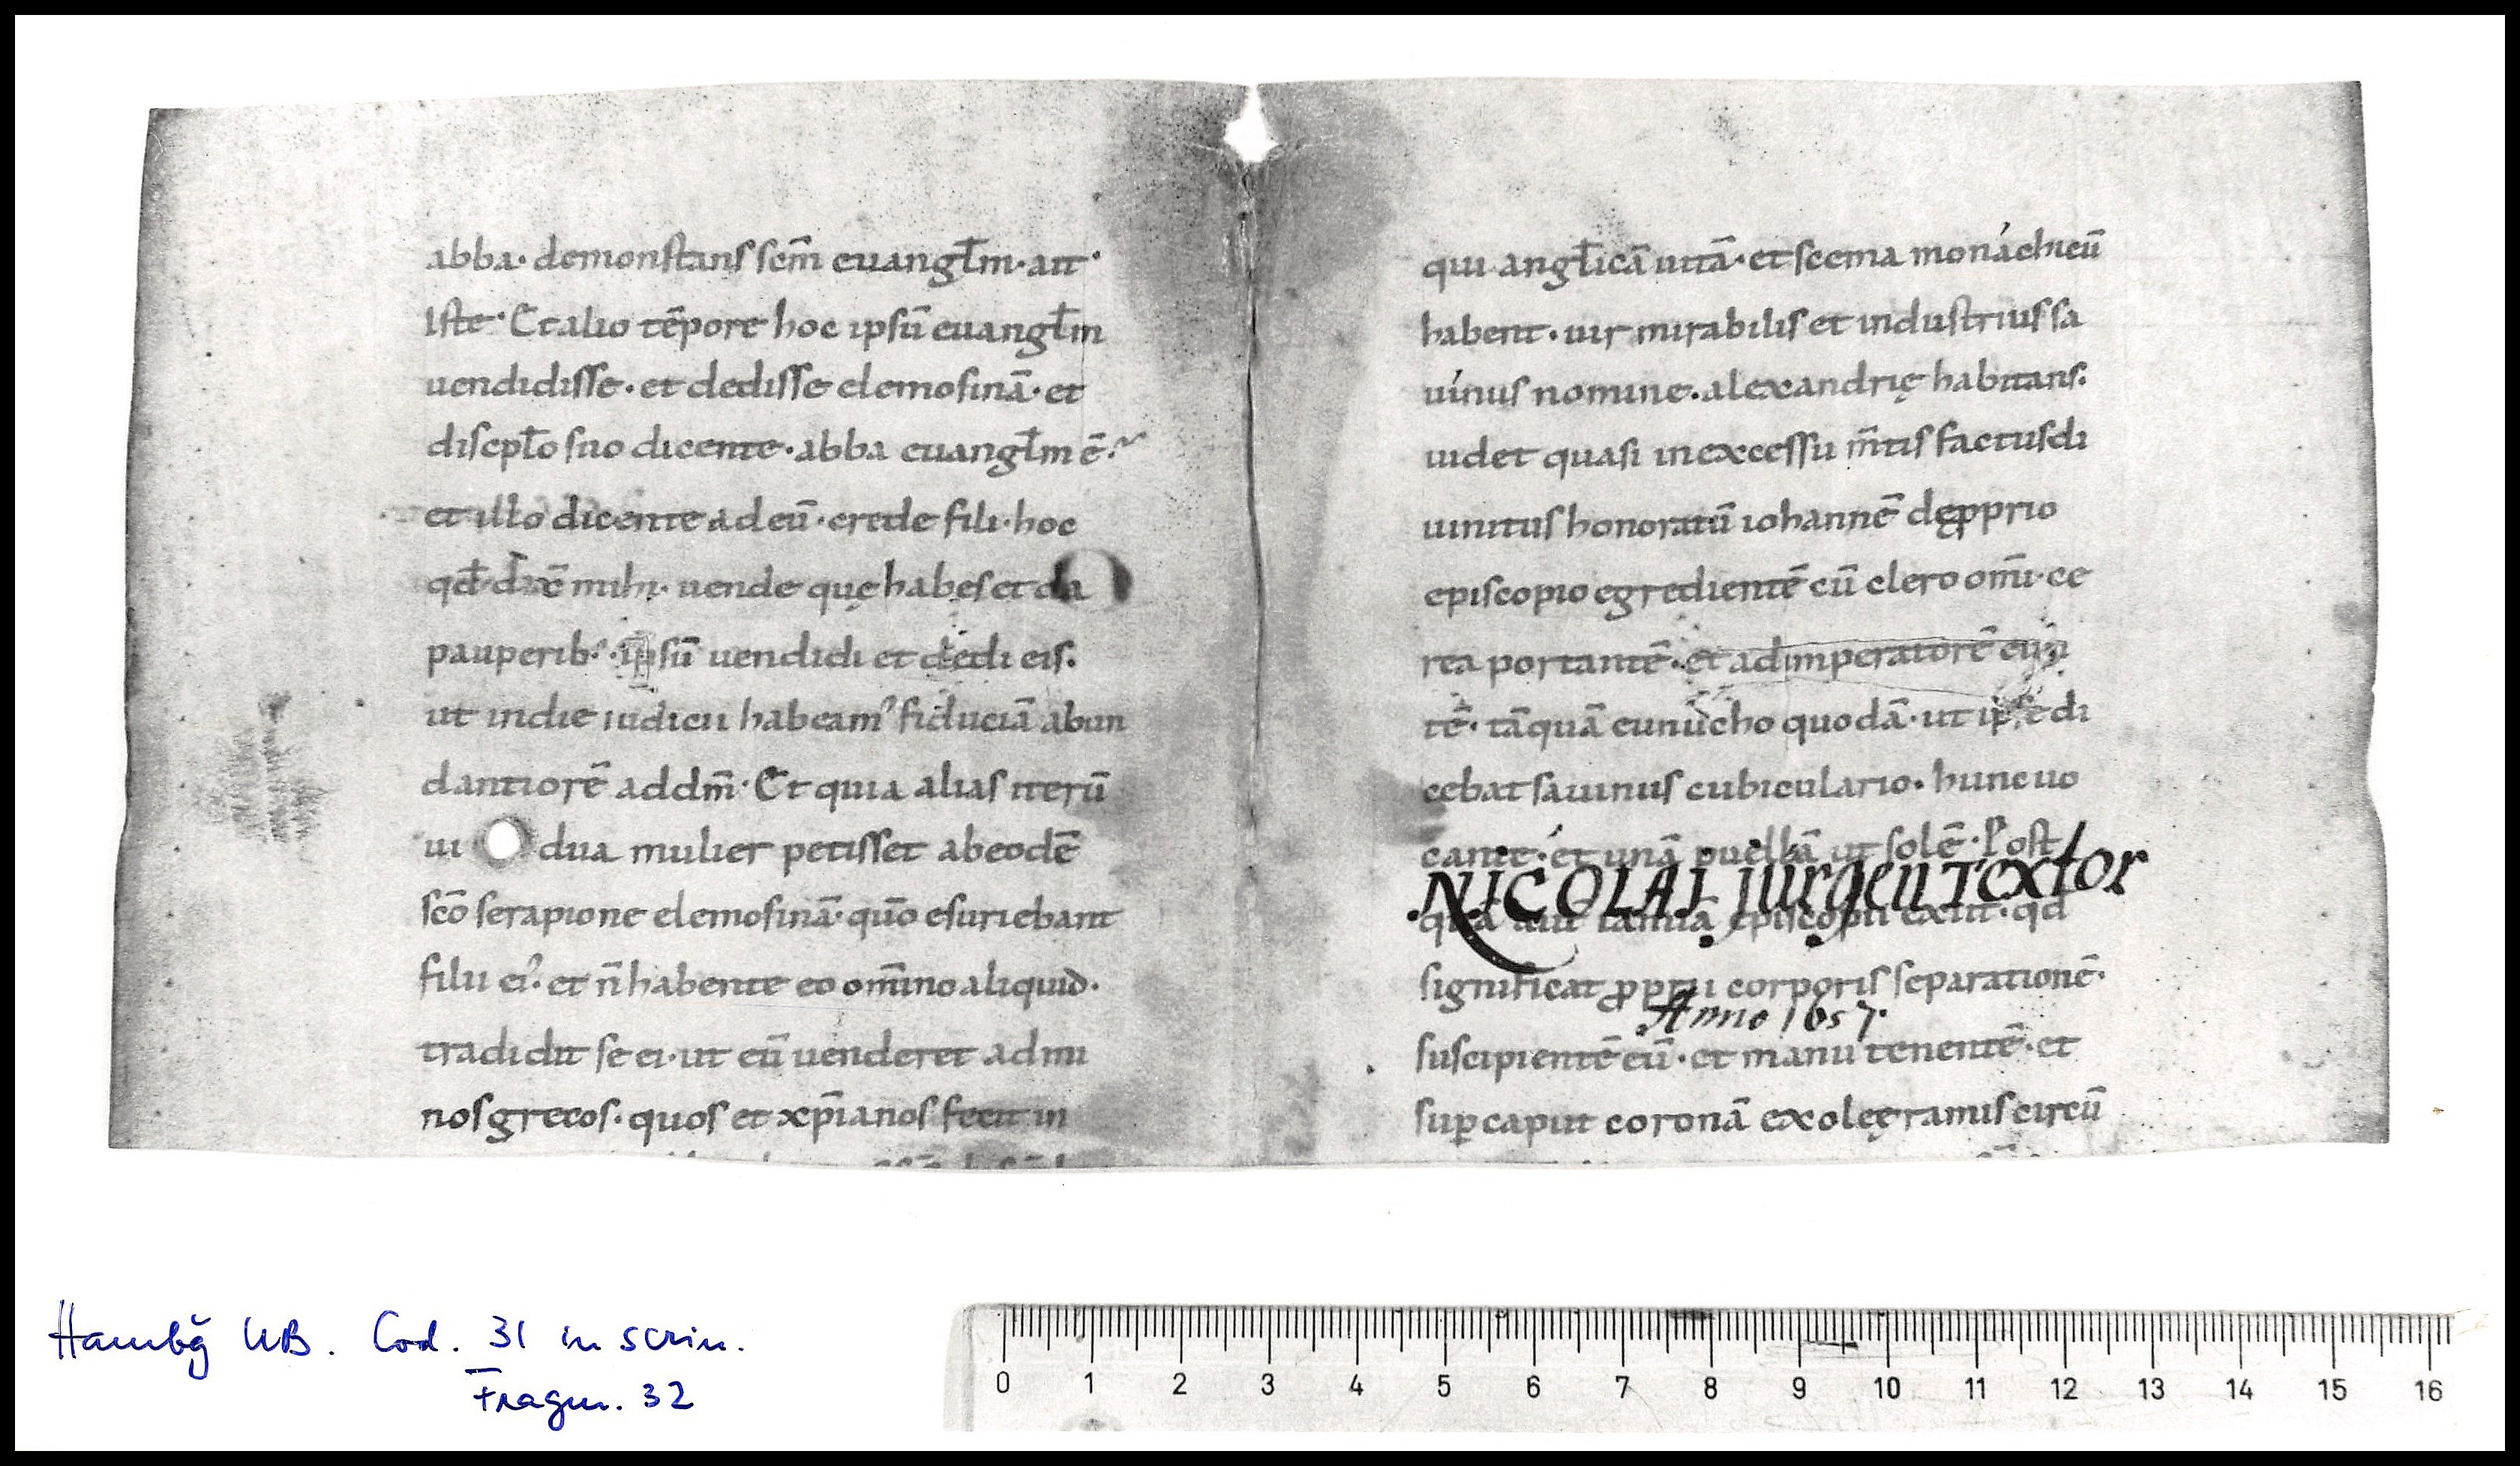 abba· demonſtans ſcm̄ euangl̄m· ait·
Iſte· Et alio tēpore hoc ipſū euangl̄m
uendidiſſe· et dediſſe elemoſinā· et
diſcipl̄o ſuo dicente· abba euangl̄m ē·
et ill̄o dicente ad eū· crede fili· hoc
qd̄ dix̄ mihi· uende quę habeſ et da
pauperib· ipſū uendidi et dedi eiſ.
ut indie iudicii habeam' fiduciā abun
dantiorē ad dm̄· Et quia aliaſ iterū
ui dua mulier petiſſet ab eodē
ſcō ſerapione elemoſinā· qūo eſuriebant
filii ei'· et n̄ habente eo om̄ino aliquid·
tradidit ſe ei· ut eū uenderet ad mi
noſ grecoſ· quoſ et xp̄ianoſ fecit in
qui angl̄icā uitā· et ſcema monáchicū
habent· uir mirabiliſ et induſtriuſ ſa
uínuſ nomine· alexandrię habitanſ.
uidet quaſi in exceſſu m̄tiſ factuſ di
uinituſ honoratū iohannē dę pprio
epiſcopio egredientē cū clero om̄i· ce
rea portantē· et ad imperatorē eun
tē· tāquā eunucho quodā· ut ipſe di
cebat ſauinuſ cubiculario· hunc uo
cante· et unā puellā ut ſolē· Poſt
NICOLAI jurgen Textor
quā aut ianuā epiſcopii exiit· qd
ſignificat pprii corporiſ ſeparationē·
Anno 1657·
ſuſcipientē eū· et manu tenentē· et
ſup caput coronā ex olee ramiſ circū
Hambg̃ UB. Cod. 31 in scrin.
Fragm. 32
0 1 2 3 4 5 6 7 8 9 10 11 12 13 14 15 16